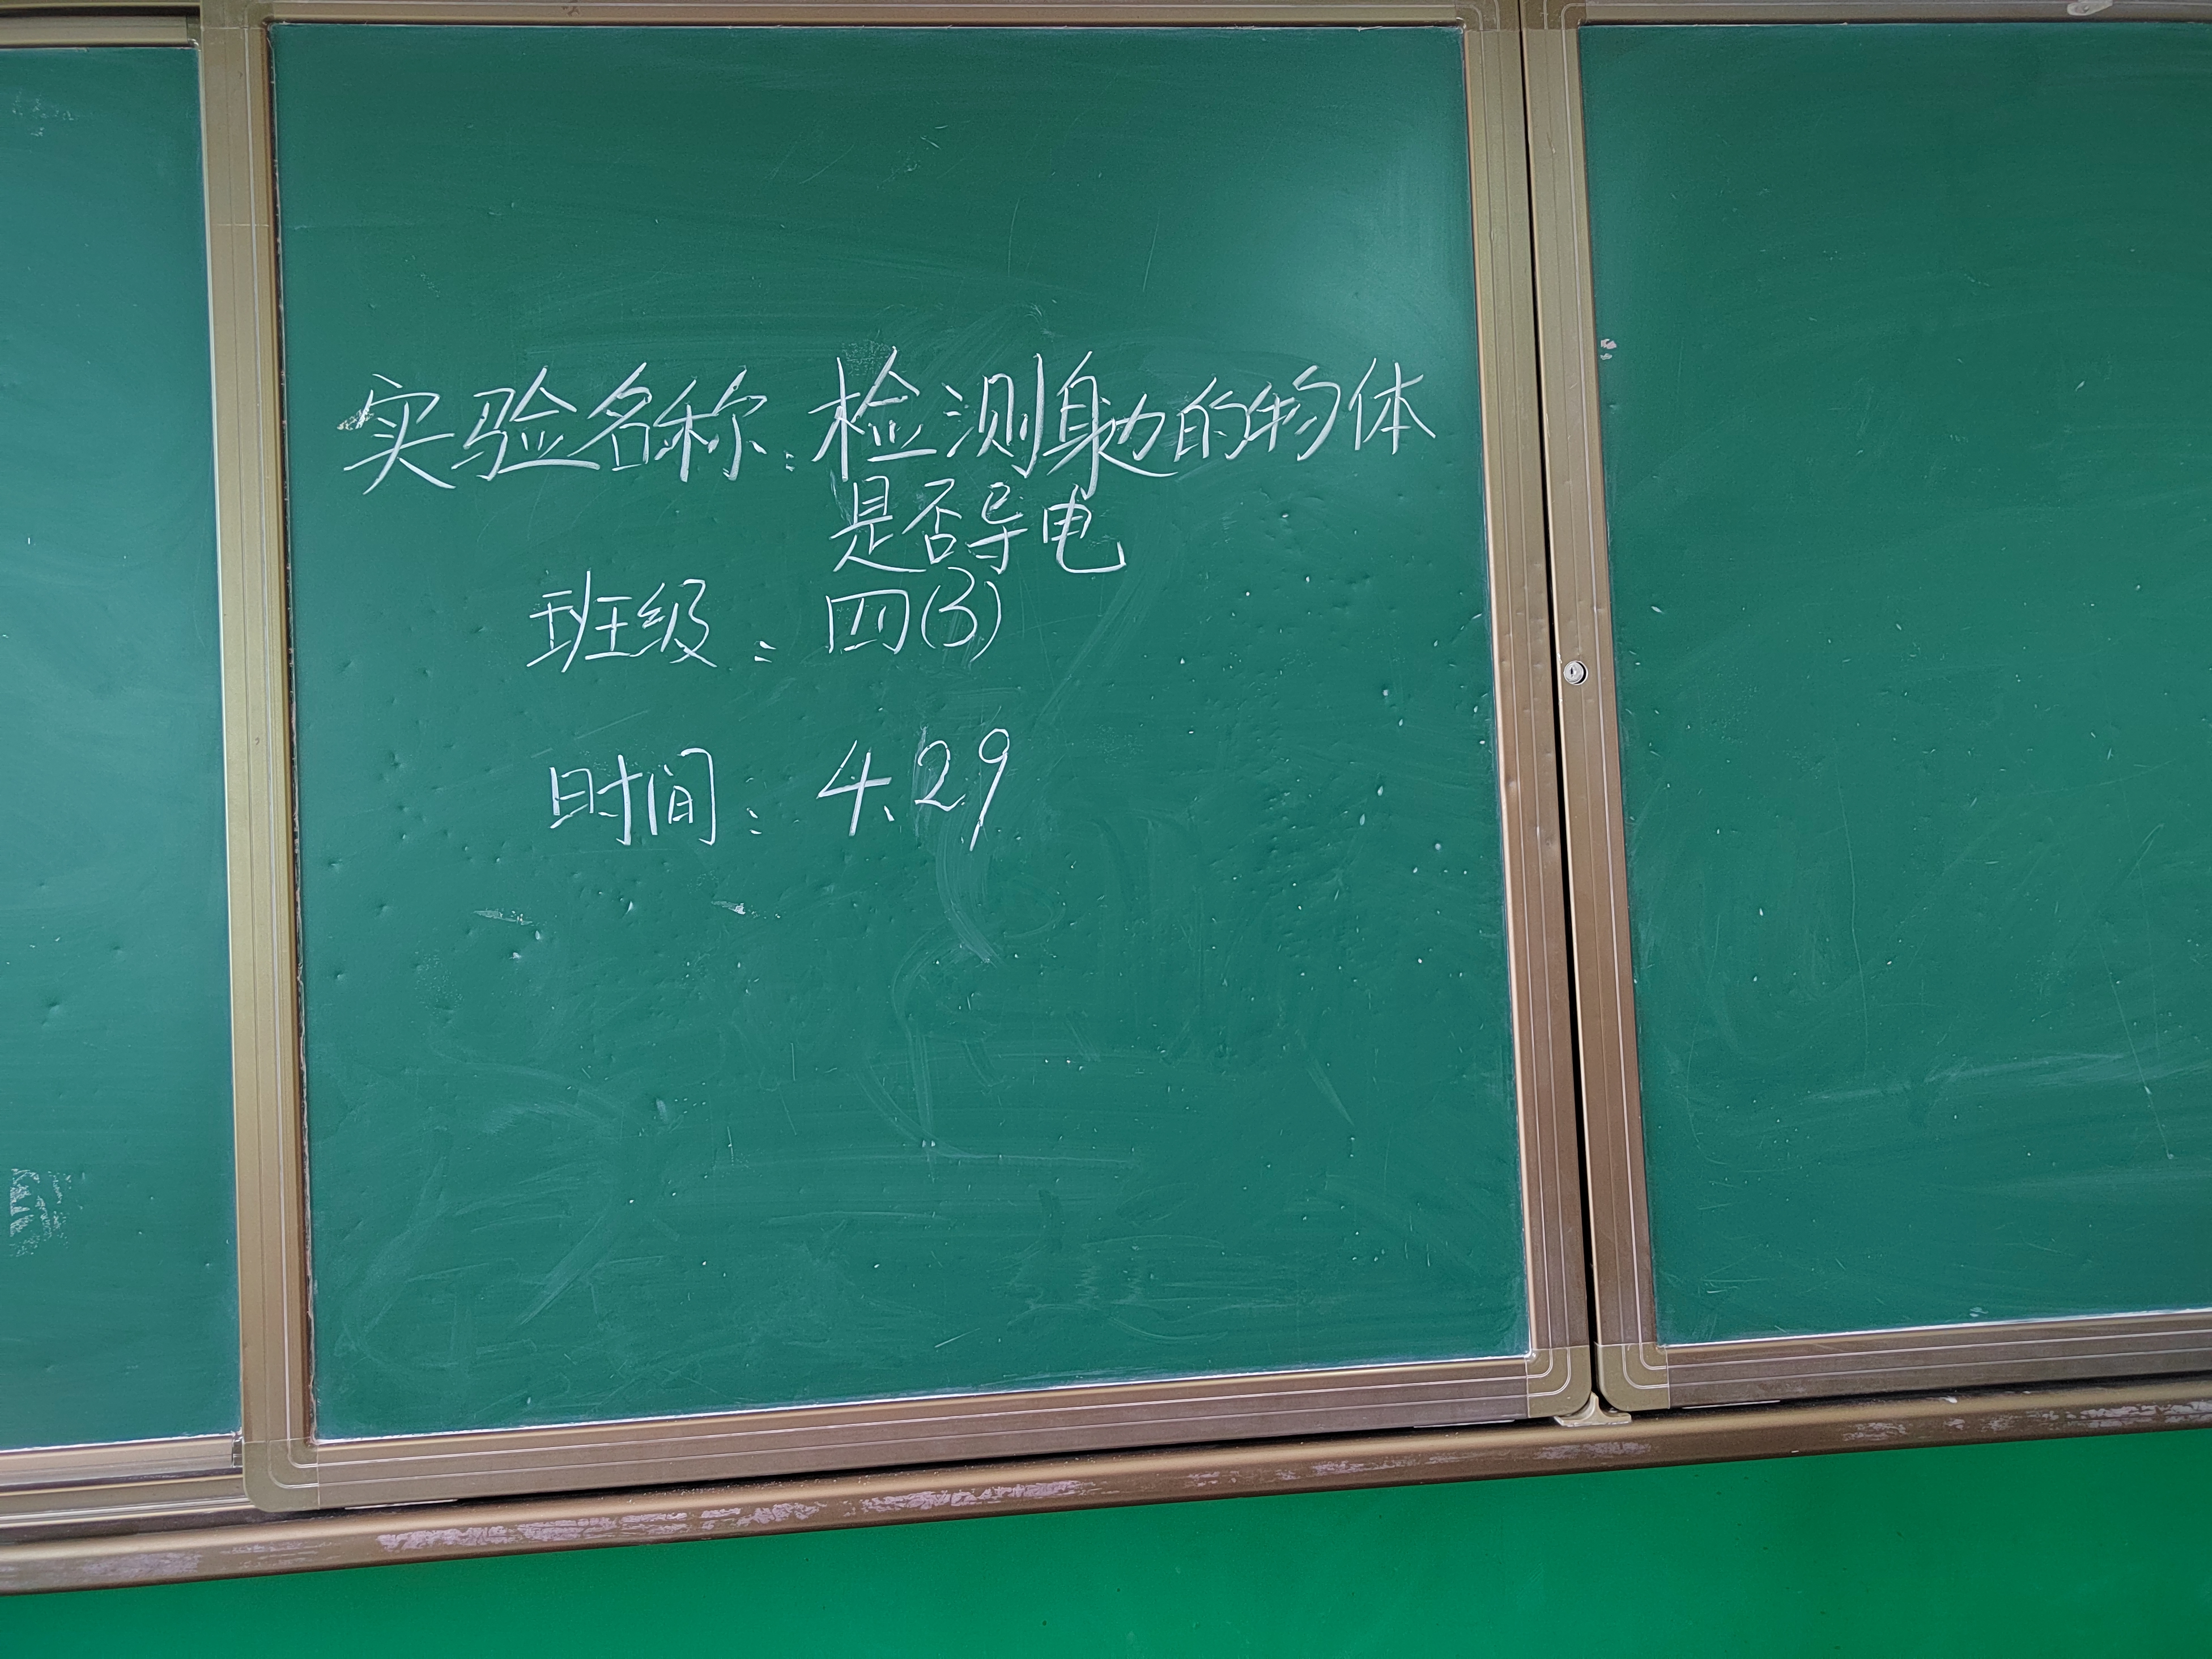 实验名称:检测身边的物体
是否导电
班级:四(3)
时间:4.29